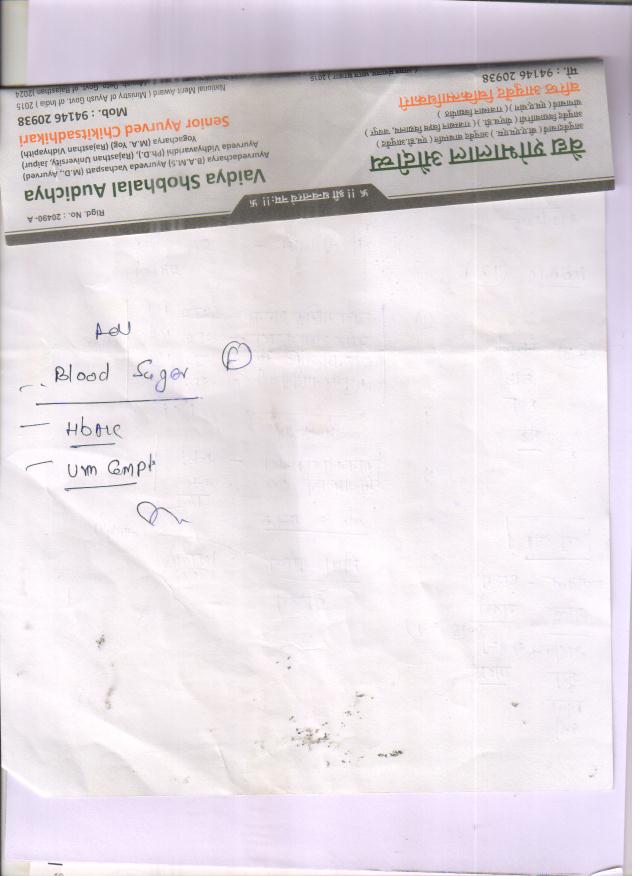 卐 !! श्री धन्वन्तराय नमः !! 卐
Rigd. No. : 20490-A
वैद्य शोभालाल औदीच्य
आयुर्वेदाचार्य ( बी.ए.एम.एस. ) आयुर्वेद वाचस्पति ( एम.डी. आयुर्वेद )
( राजस्थान विश्व विद्यालय, जयपुर )
( राजस्थान विद्यापीठ )
वरिष्ठ आयुर्वेद चिकित्साधिकारी
मो. : 94146 20938
Vaidya Shobhalal Audichya
Ayurvedacharya (B.A.M.S) Ayurved Vachaspati (M.D., Ayurved)
Ayurved Vidhyavaridhi (Ph.D.), (Rajasthan University, Jaipur)
Yogacharya (M.A. Yog) (Rajasthan Vidhyapith)
Senior Ayurved Chikitsadhikari
Mob. : 94146 20938
National Merit Award ( Ministry of Ayush Govt. of India ) 2015
Adv
Blood Sugar (F)
HbA1c
Urin Compt